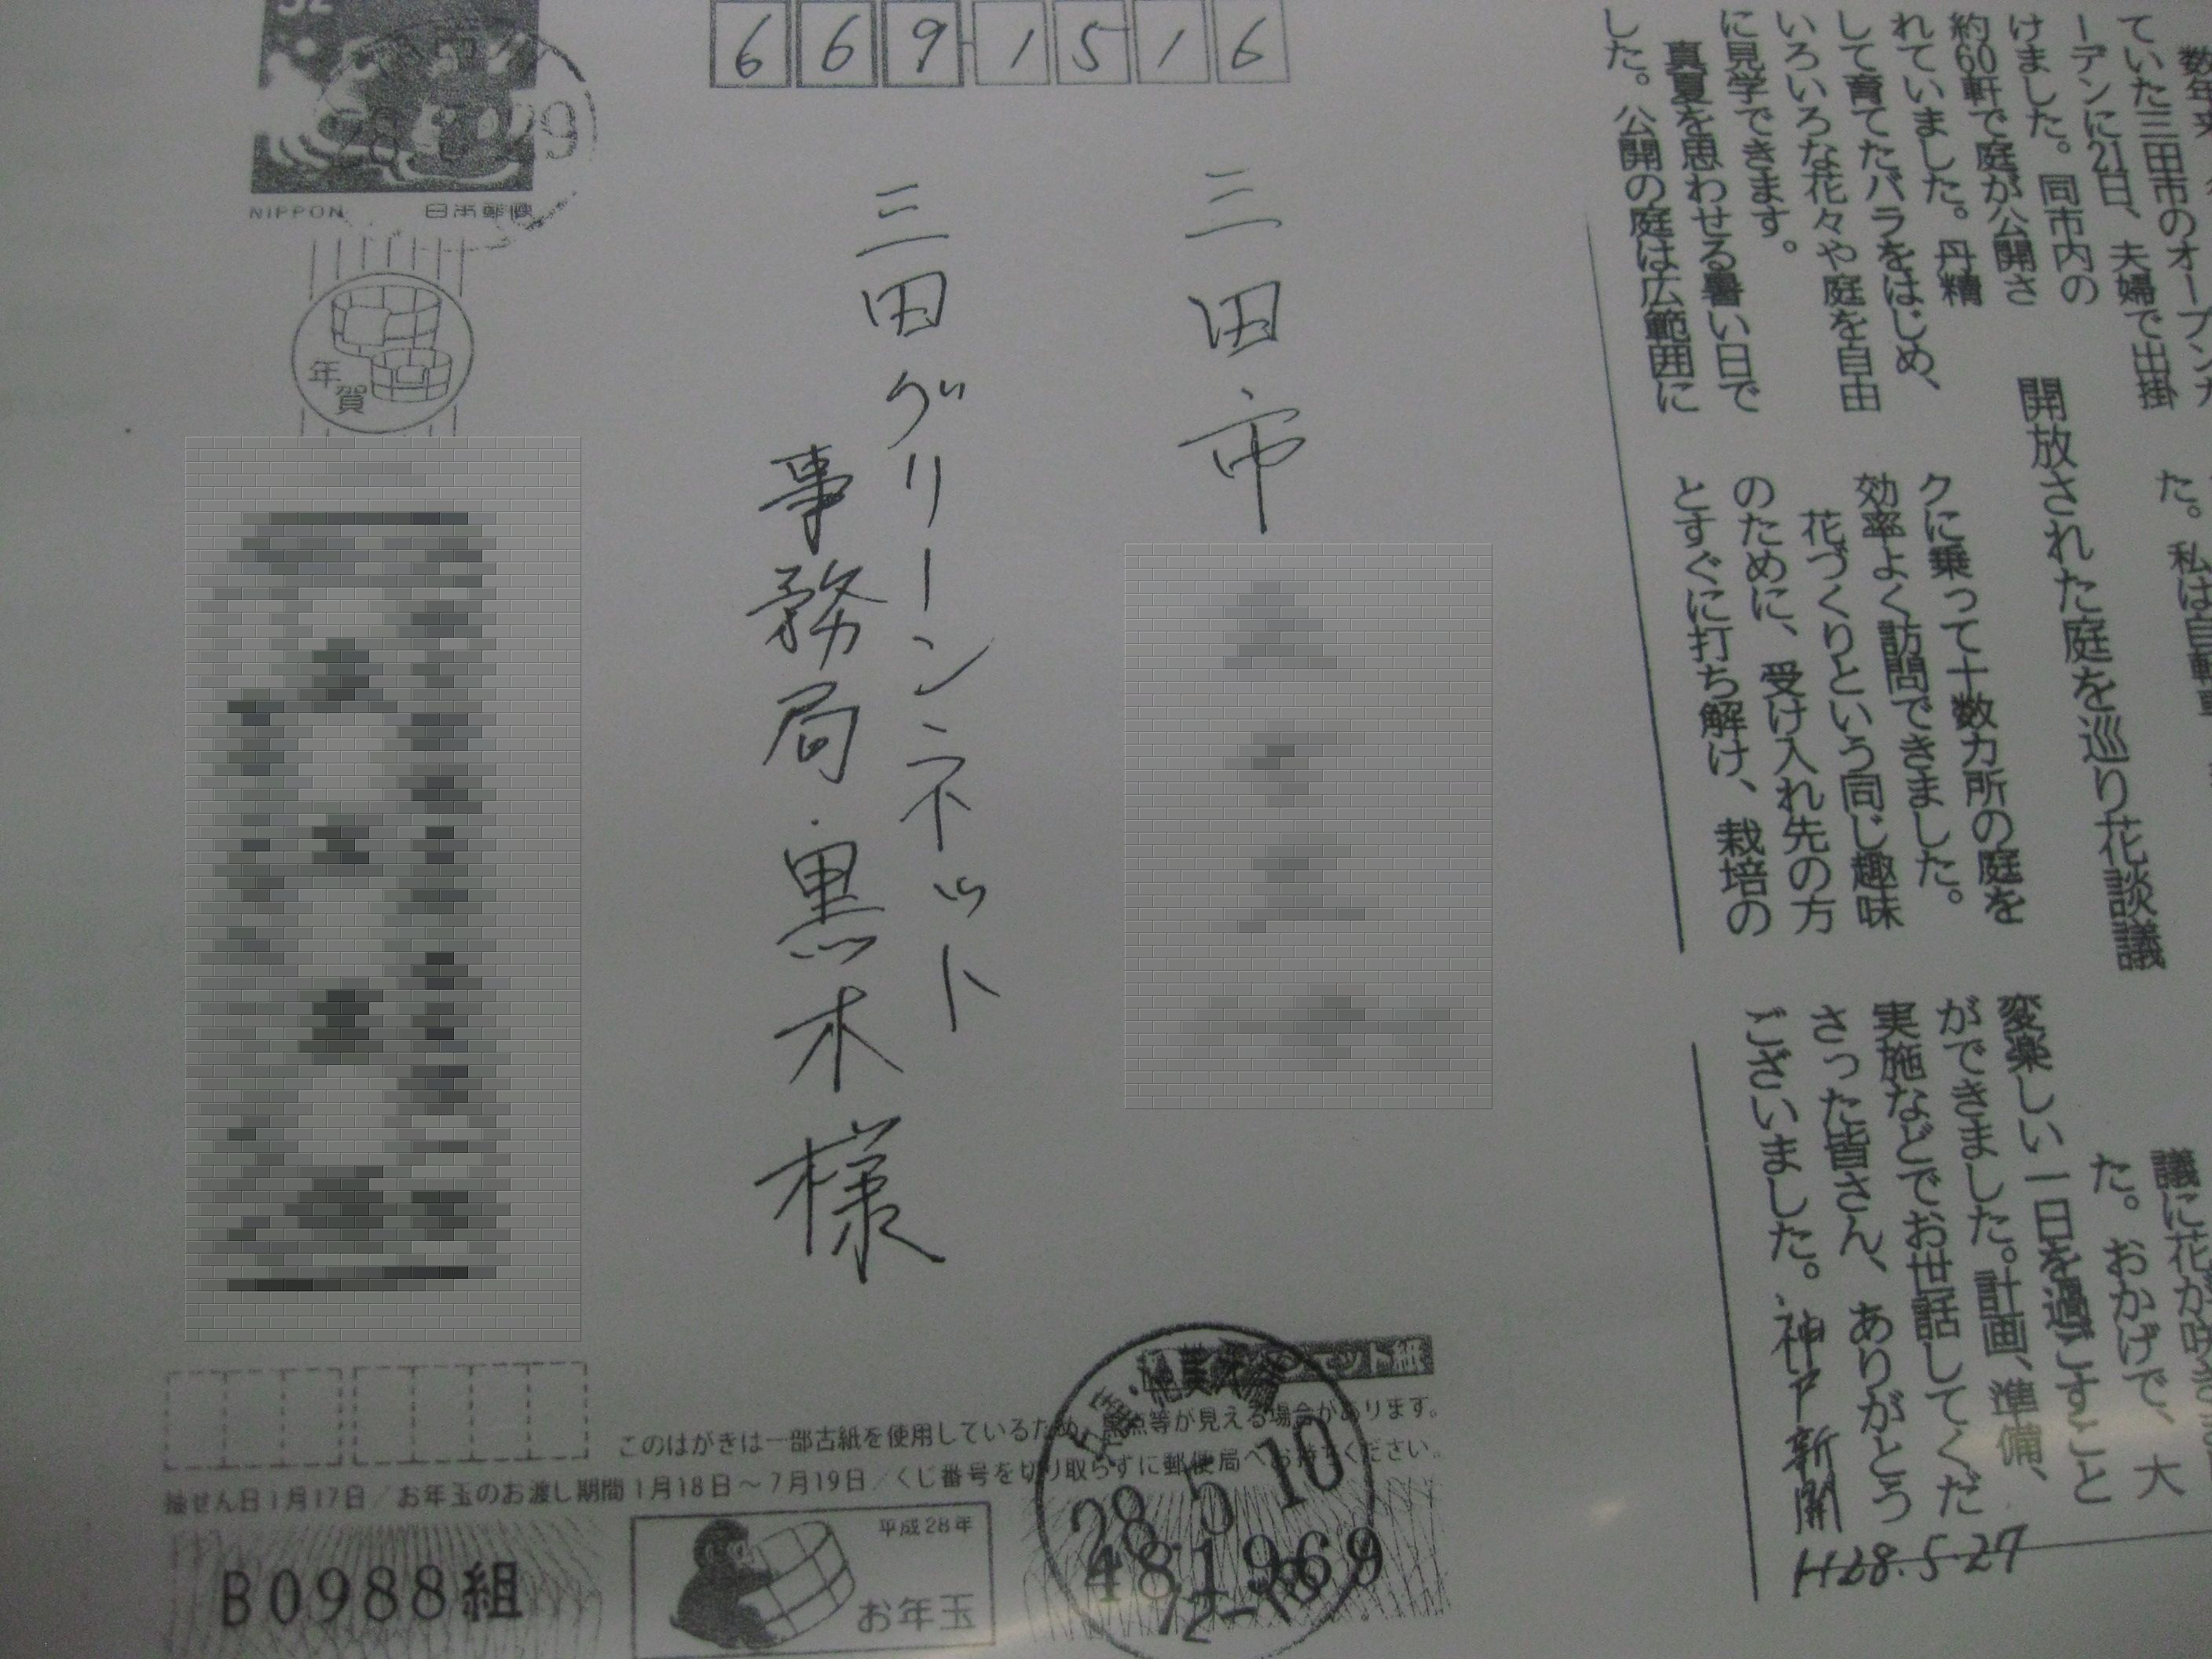 52
NIPPON 日本郵便
年賀
669-1516
三田市
三田グリーンネット
事務局・黒木様
このはがきは一部古紙を使用しているため、黒点等が見える場合があります。
抽せん日1月17日/お年玉のお渡し期間1月18日~7月19日/くじ番号を切り取らずに郵便局へお持ちください。
B0988組
平成28年
お年玉
481969
28 5 10
12-18
開放された庭を巡り花談議
ていた三田市のオープンガ
ーデンに21日、夫婦で出掛
けました。同市内の
約60軒で庭が公開さ
れていました。丹精
して育てたバラをはじめ、
いろいろな花々や庭を自由
に見学できます。
真夏を思わせる暑い日で
した。公開の庭は広範囲に
た。私は自転車
クに乗って十数カ所の庭を
効率よく訪問できました。
花づくりという同じ趣味
のために、受け入れ先の方
とすぐに打ち解け、栽培の
議に花が咲き
た。おかげで、大
変楽しい一日を過ごすこと
ができました。計画、準備、
実施などでお世話してくだ
さった皆さん、ありがとう
ございました。
神戸新聞
H28.5.27